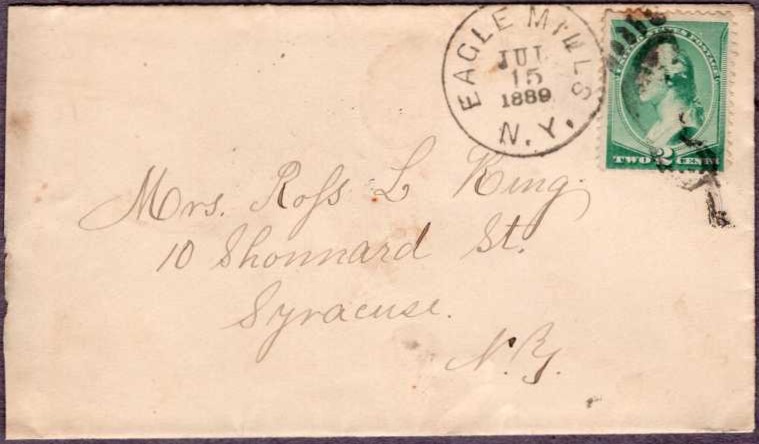 EAGLE MILLS
JUL
15
1889
N.Y.
UNITED STATES POSTAGE
TWO 2 CENTS
Mrs. Ross L King.
10 Shonnard St.
Syracuse.
N.Y.